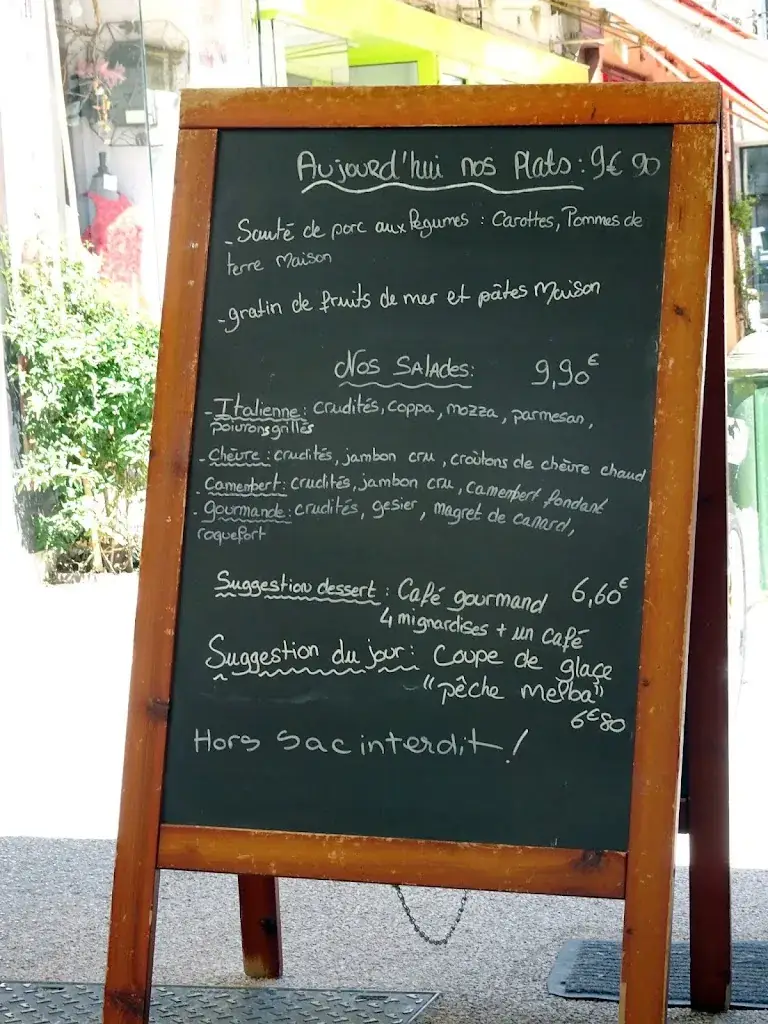 Aujourd'hui nos Plats : 9€ 90
- Sauté de porc aux légumes : Carottes, Pommes de
terre Maison
- gratin de fruits de mer et pâtes Maison
Nos SALADES : 9,90€
- Italienne : crudités, coppa, mozza, parmesan,
poivrons grillés
- Chèvre : crudités, jambon cru, croûtons de chèvre chaud
- Camembert : crudités, jambon cru, Camembert fondant
- Gourmande : crudités, gesier, magret de canard,
roquefort
Suggestion dessert : Café gourmand 6,60€
4 mignardises + un café
Suggestion du jour : Coupe de glaçe
"pêche melba"
6€80
Hors sac interdit !